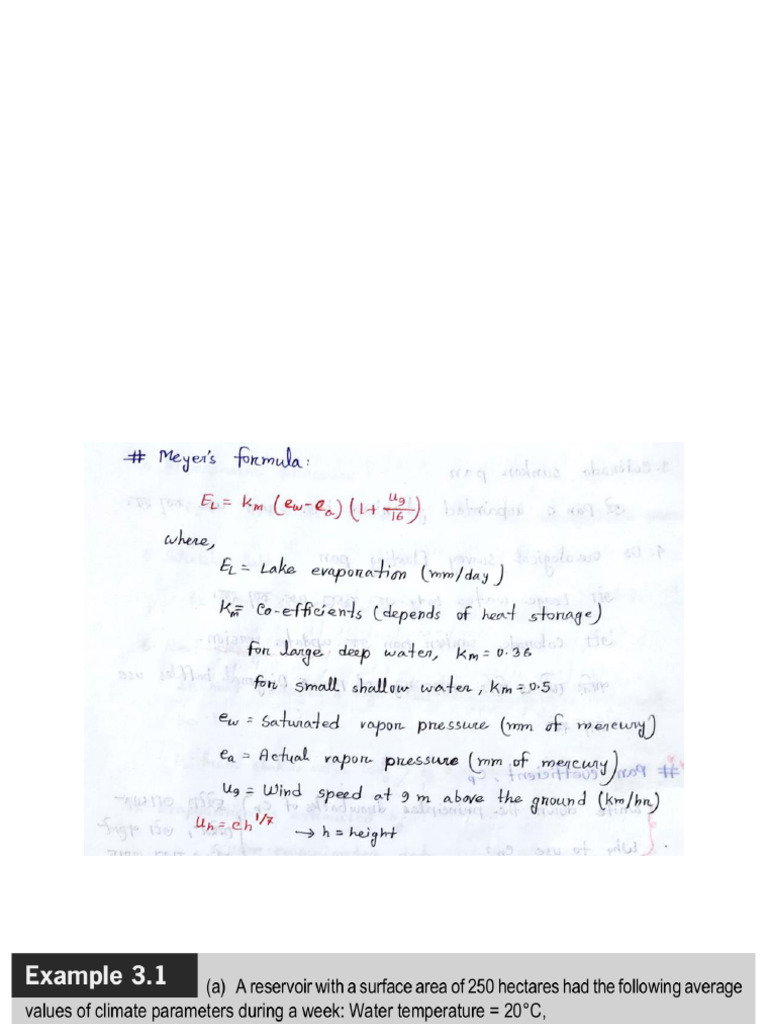 # Meyer's formula:
E_L = K_m (e_w - e_a) (1 + u_9/16)
where,
E_L = Lake evaporation (mm/day)
K_m = Co-efficients (depends of heat storage)
for large deep water, K_m = 0.36
for small shallow water, K_m = 0.5
e_w = Saturated vapor pressure (mm of mercury)
e_a = Actual vapor pressure (mm of mercury)
u_9 = Wind speed at 9 m above the ground (km/hr)
u_h = ch^1/7 → h = height
Example 3.1 (a) A reservoir with a surface area of 250 hectares had the following average
values of climate parameters during a week: Water temperature = 20°C,